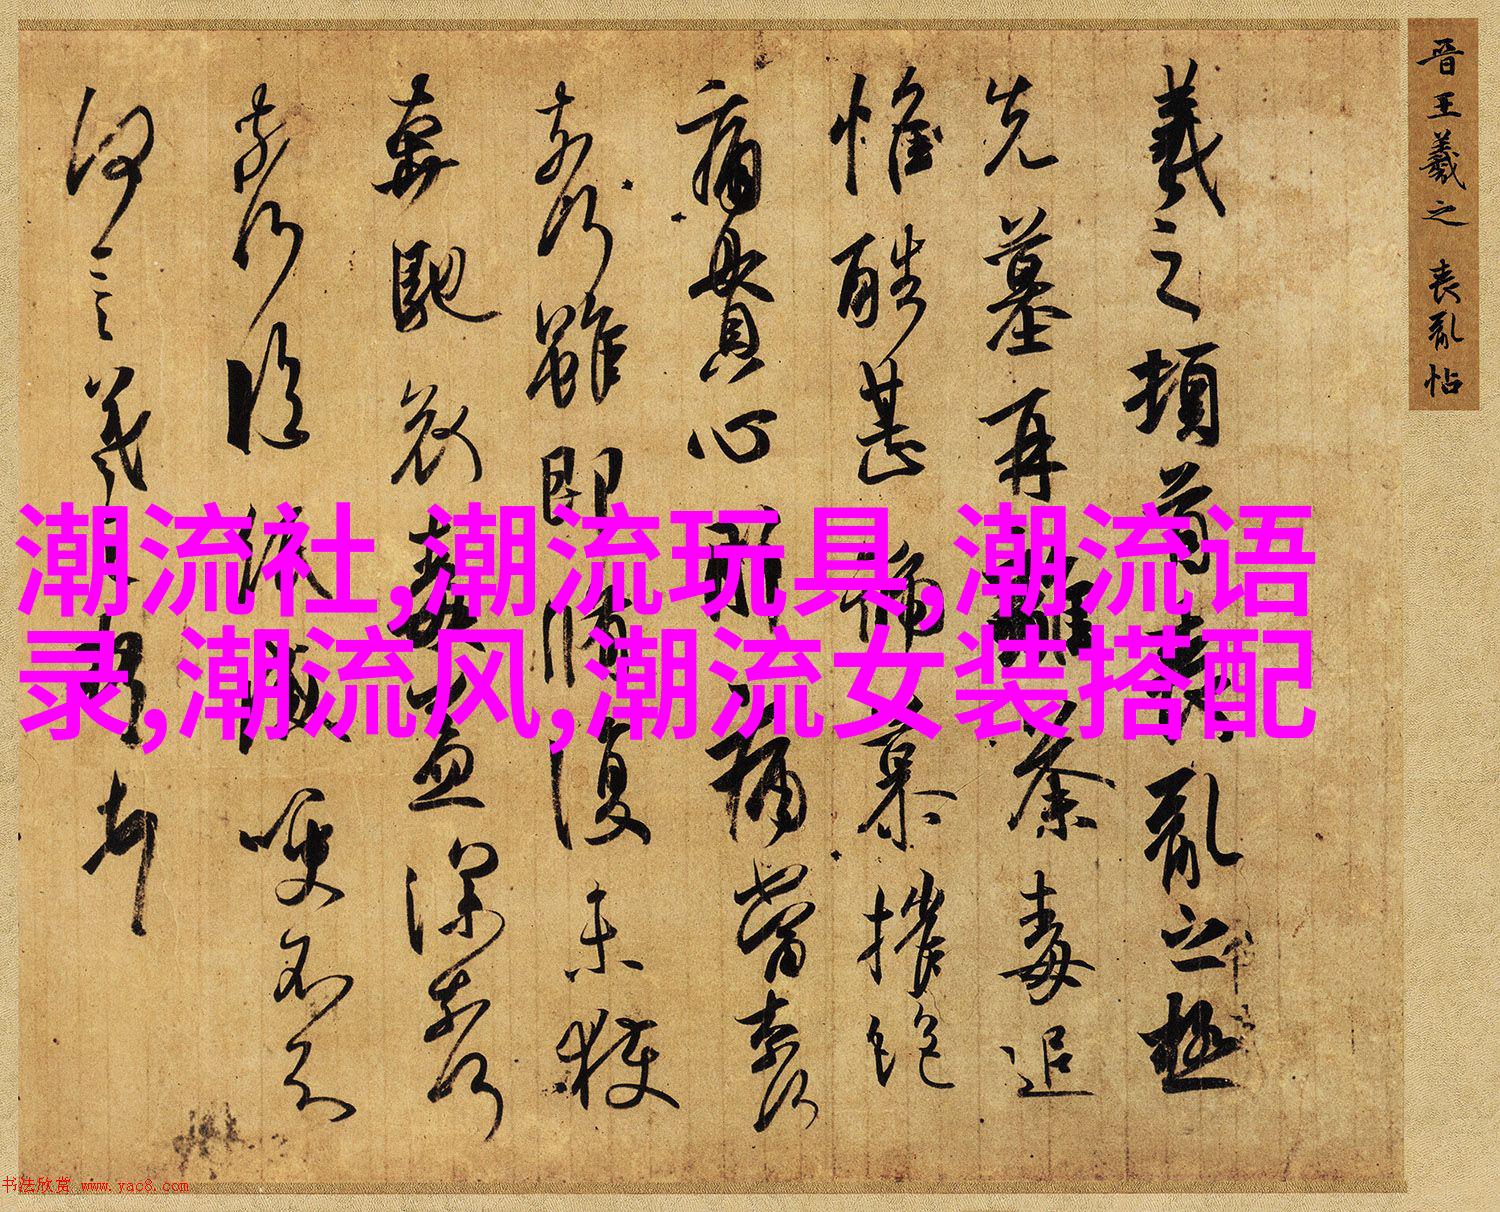 晋王羲之 丧乱帖
羲之顿首丧乱之极
先墓再離荼毒追
惟酷甚號慕摧絶
痛貫心肝痛當奈何
奈何雖即脩復未獲
奔馳哀毒益深奈何
奈何臨紙感哽不知
何言羲之頓首
潮流社,潮流玩具,潮流语
录,潮流风,潮流女装搭配
书法欣赏 www.yac8.com